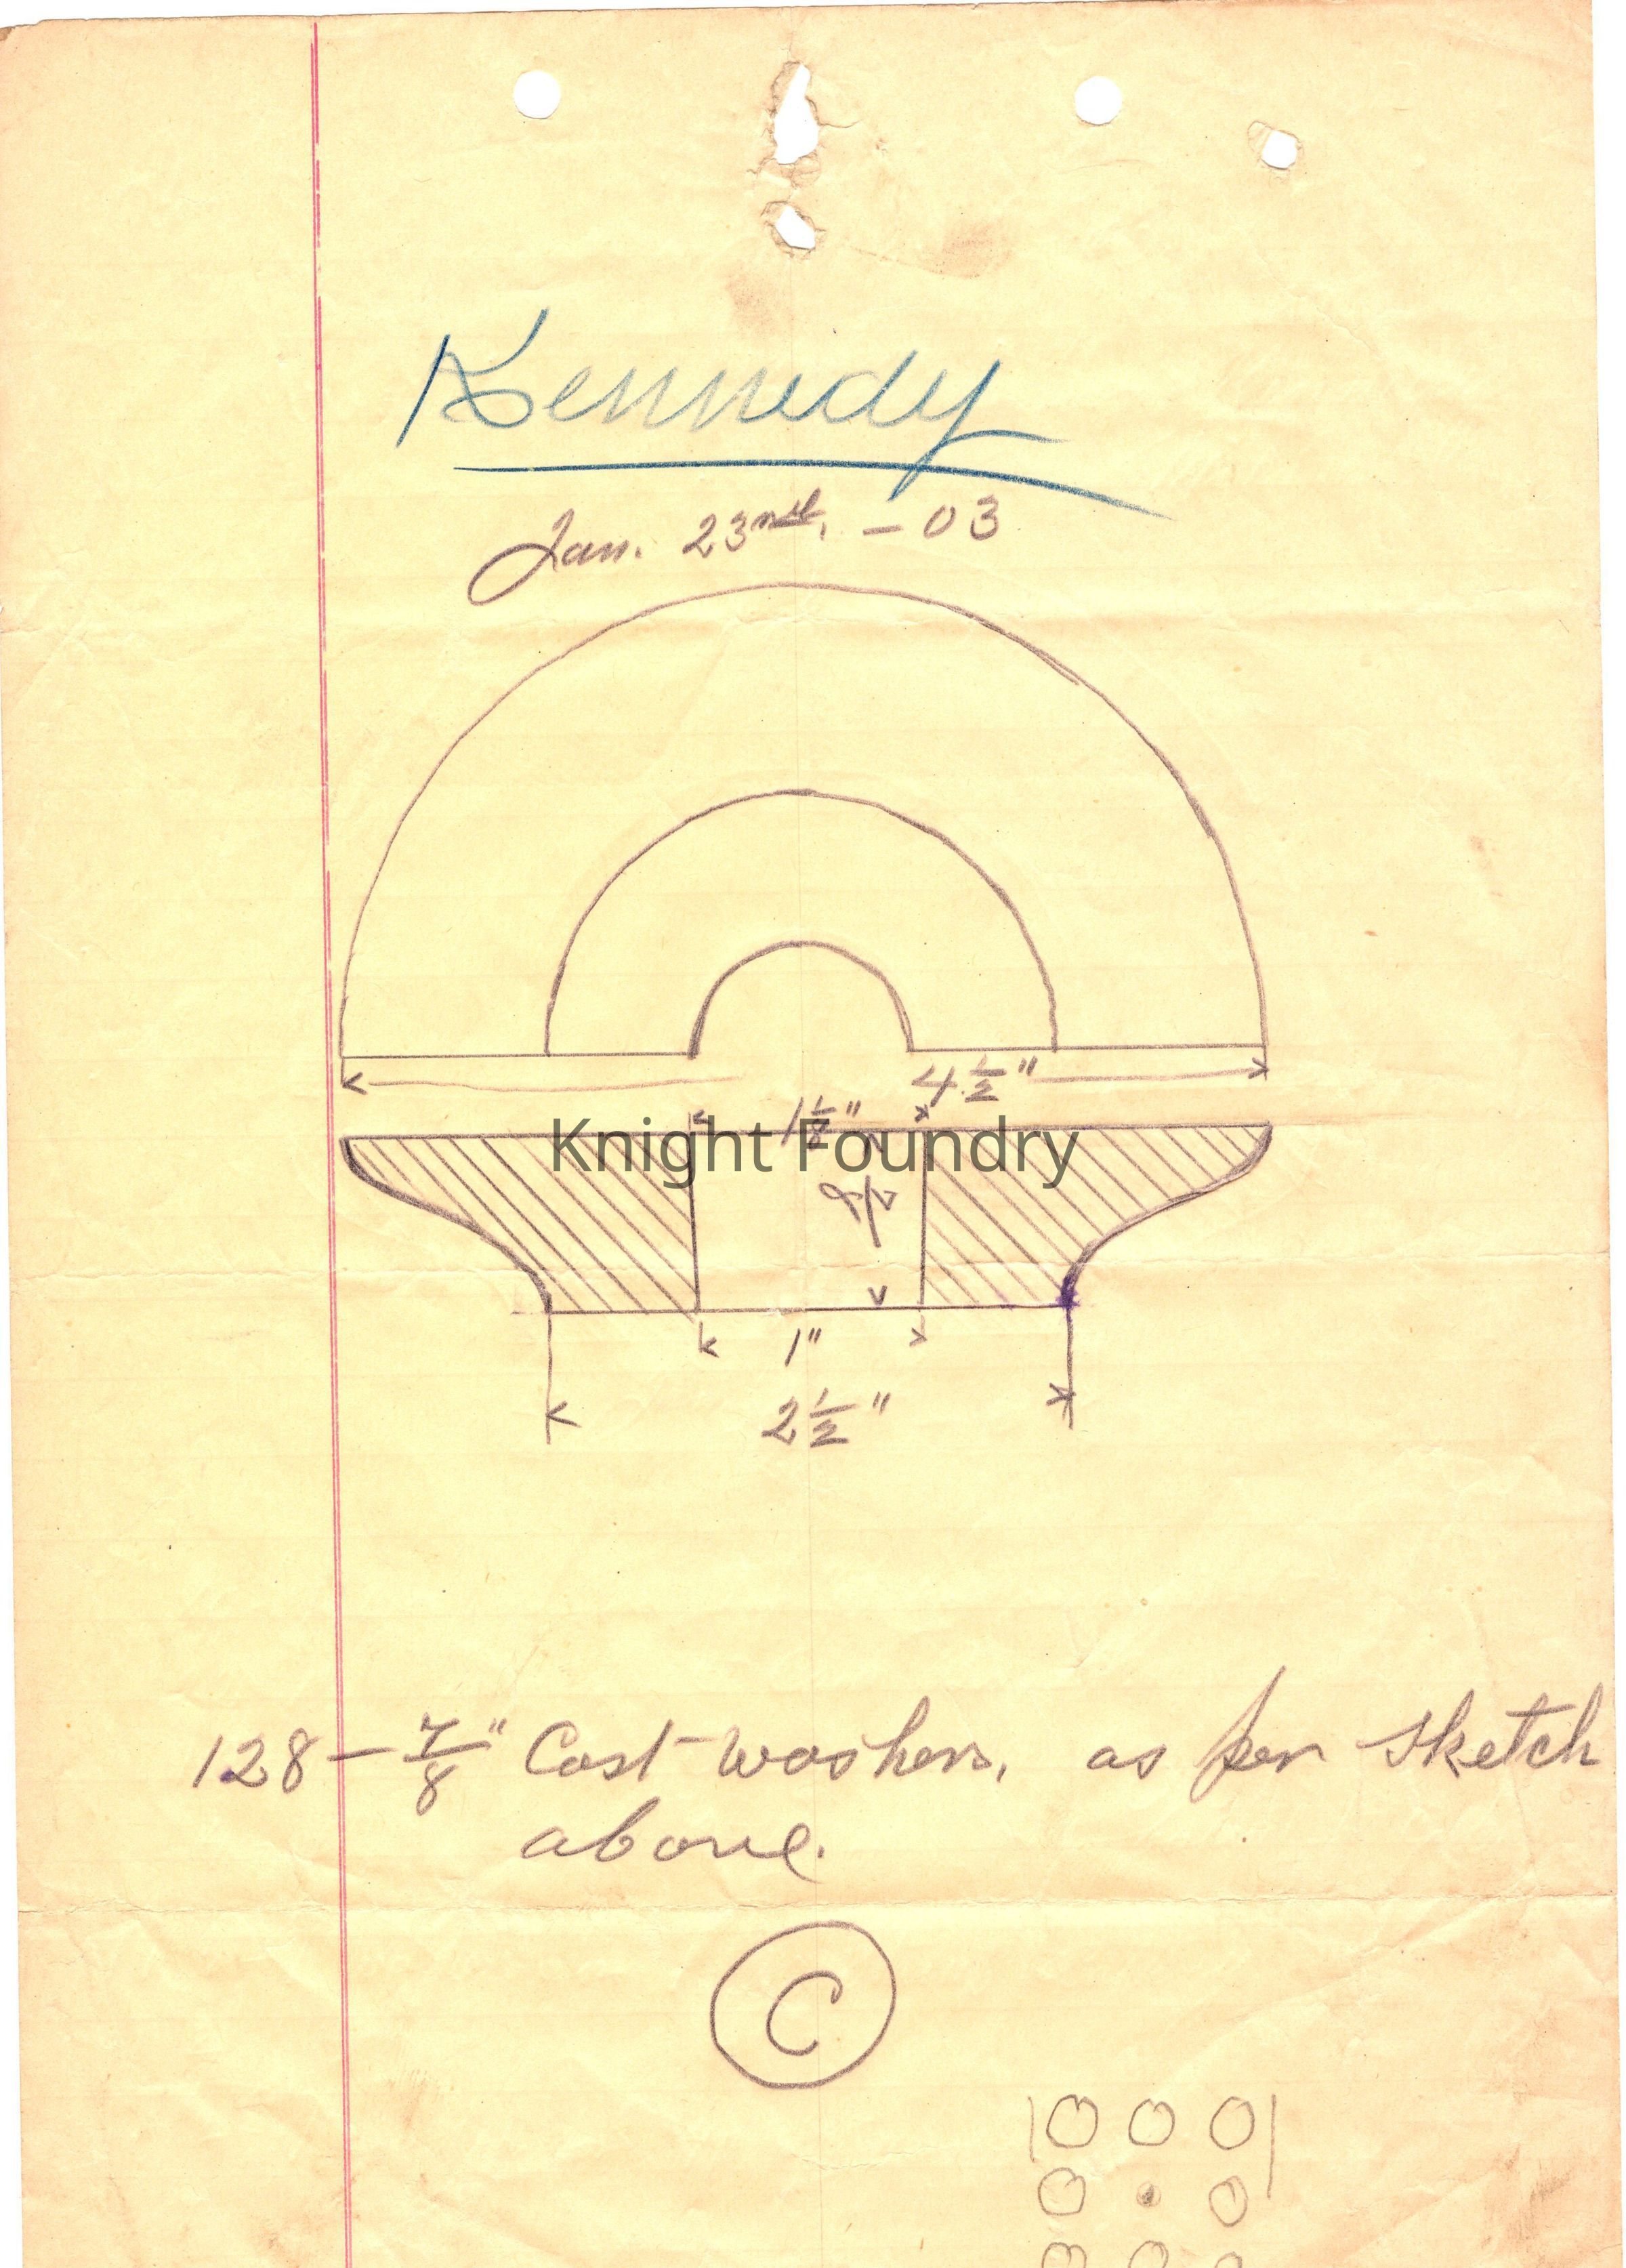 Kennedy
Jan. 23nd. - 03
4 1/2"
Knight Foundry
7/8
1"
2 1/2"
128 - 7/8" Cast washers, as per sketch
above.
C